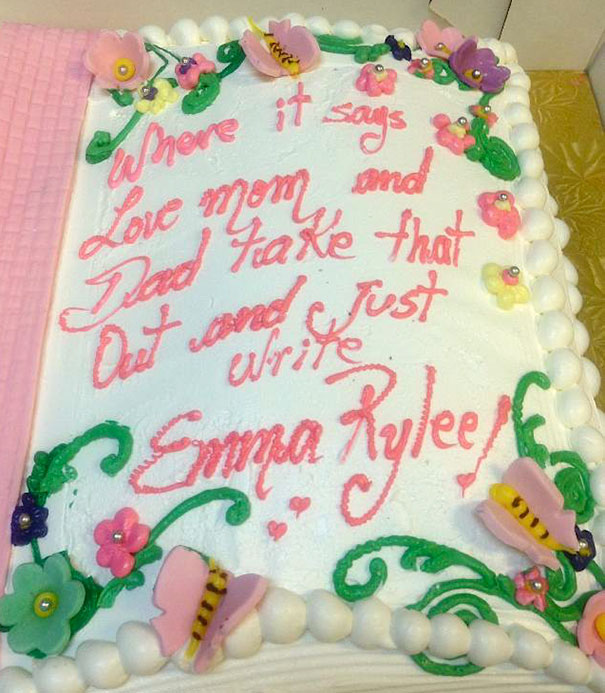 Where it says
Love mom and
Dad take that
Out and just
write
Emma Rylee!